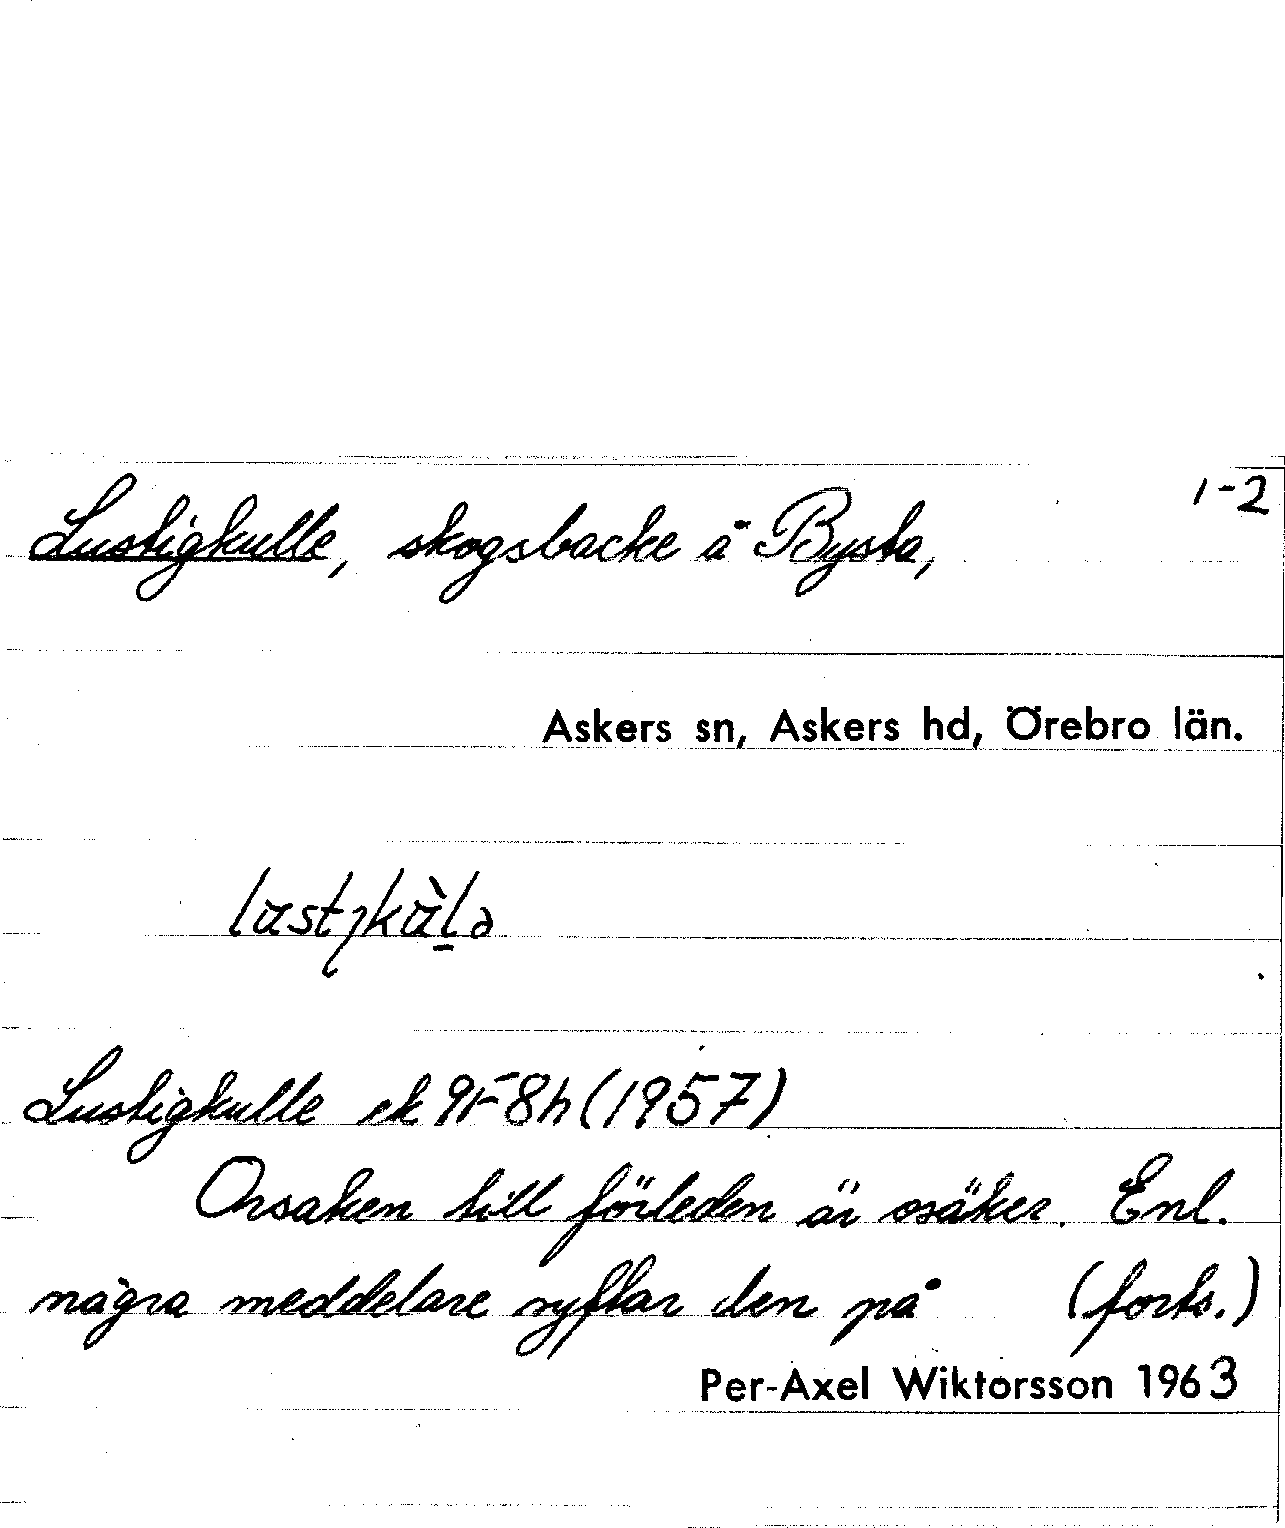 1-2
Lustigkulle, skogsbacke å Bysta,
Askers sn, Askers hd, Örebro län.
Lustigkulle ek 9F8h (1957)
Orsaken till förleden är osäker. Enl.
några meddelare syftar den på (forts.)
Per-Axel Wiktorsson 1963